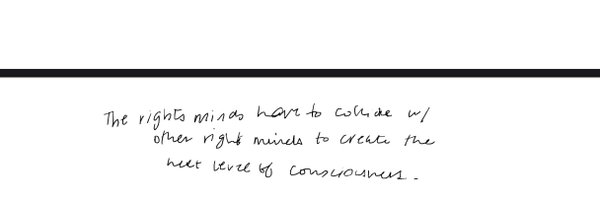 The rights minds have to collide w/
other right minds to create the
next level of consciousness.